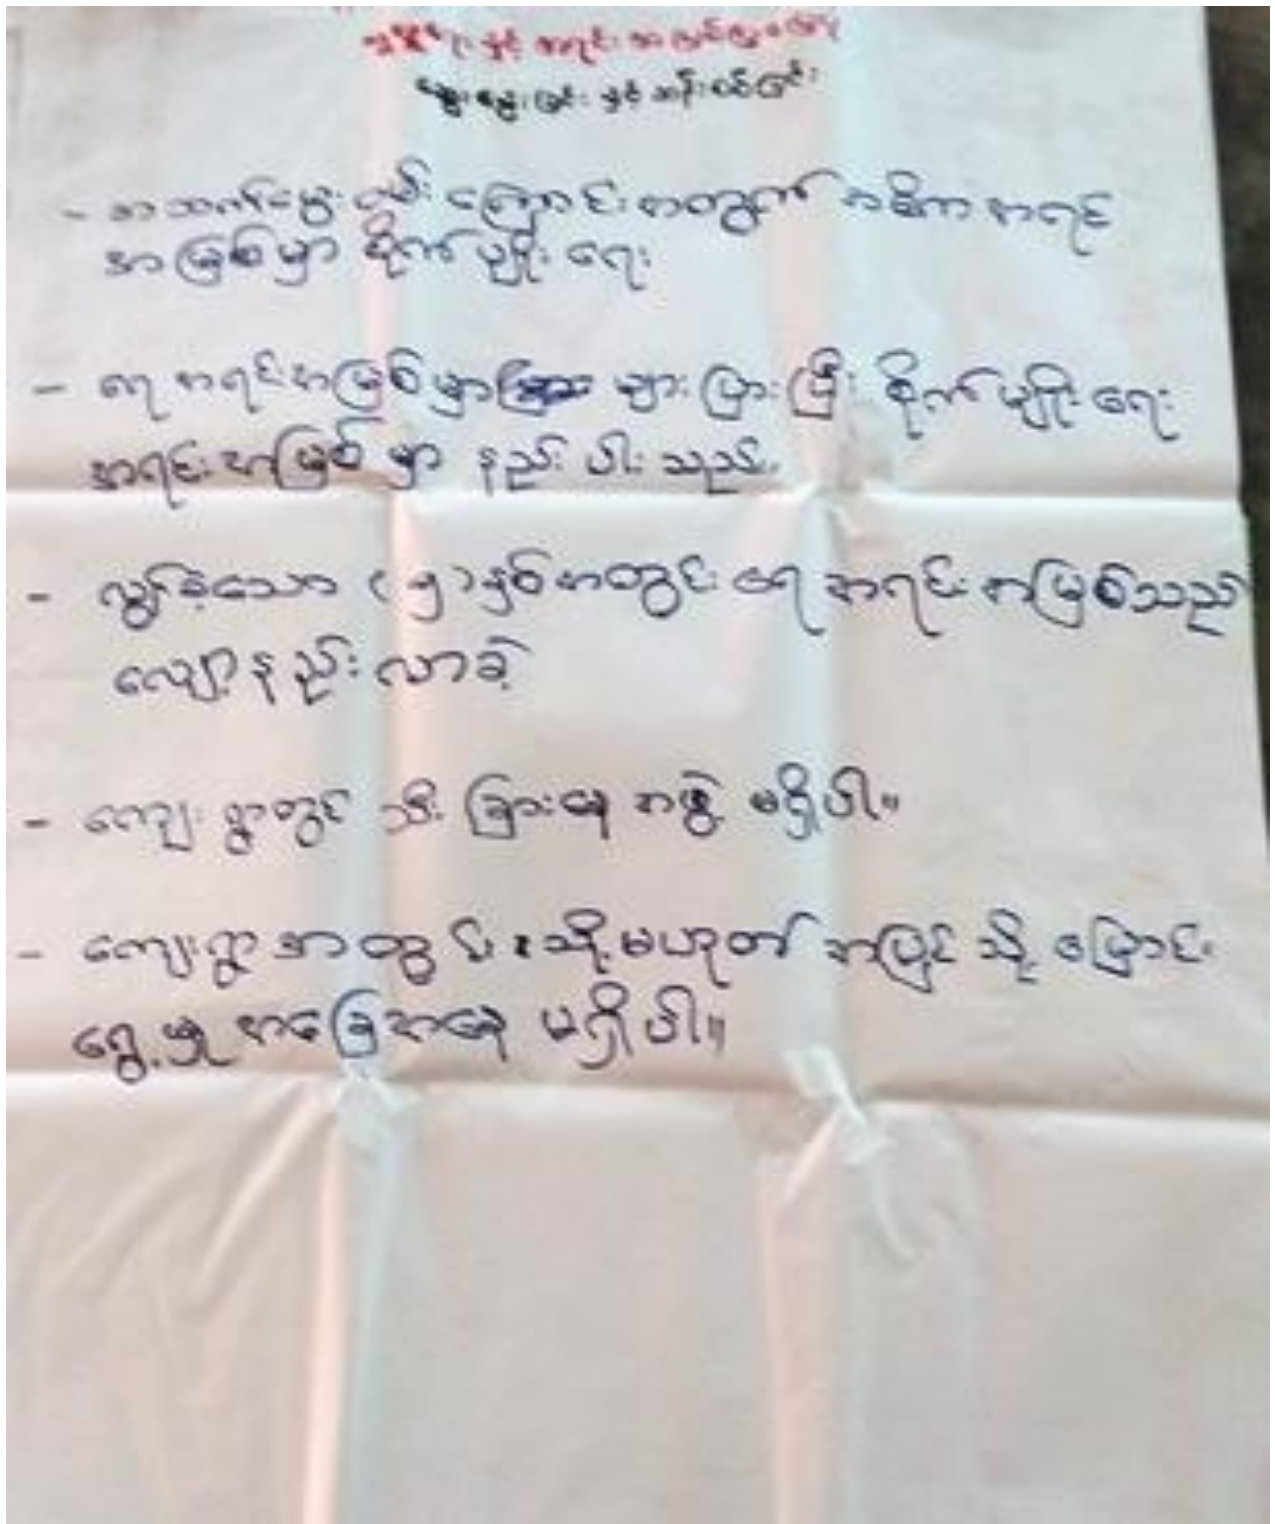 နှင့် အရင်း အမြစ်
ဆွေးနွေးခြင်း နှင့် ဆန်းစစ်ခြင်း
- အသက်မွေးဝမ်းကြောင်းအတွက် အဓိကအရင်
အမြစ်မှာ စိုက်ပျိုးရေး
- ရေအရင်းအမြစ်မှာ များပြားပြီး စိုက်ပျိုးရေး
အရင်းအမြစ်မှာ နည်းပါးသည်.
- လွန်ခဲ့သော (၅)နှစ်အတွင်း ရေအရင်းအမြစ်သည်
လျော့နည်းလာခဲ့
- ကျေးရွာတွင် သီးခြားနေ အဖွဲ့ မရှိပါ။
- ကျေးရွာအတွင်း သို့မဟုတ် အပြင်သို့ ပြောင်း
ရွှေ့မှု အခြေအနေ မရှိပါ။